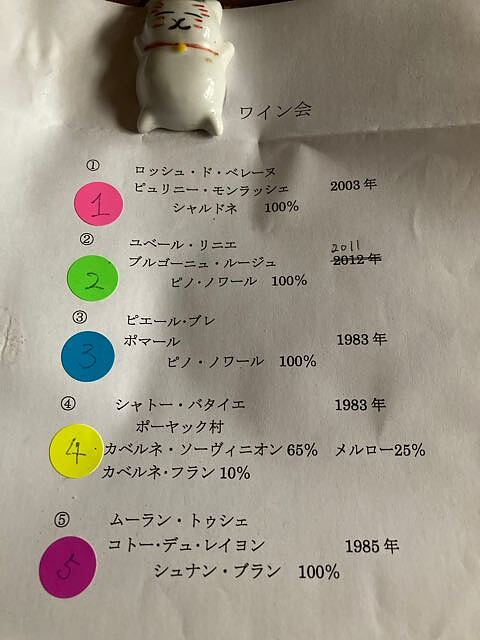 ワイン会
①
ロッシュ・ド・ベレーヌ
1 ピュリニー・モンラッシェ 2003年
シャルドネ 100%
②
ユベール・リニエ 2011
2 ブルゴーニュ・ルージュ 2012年
ピノ・ノワール 100%
③
ピエール・ブレ
3 ポマール 1983年
ピノ・ノワール 100%
④ シャトー・バタイエ 1983年
ポーヤック村
4 カベルネ・ソーヴィニオン 65% メルロー25%
カベルネ・フラン 10%
⑤ ムーラン・トゥシェ
コトー・デュ・レイヨン 1985年
5 シュナン・ブラン 100%